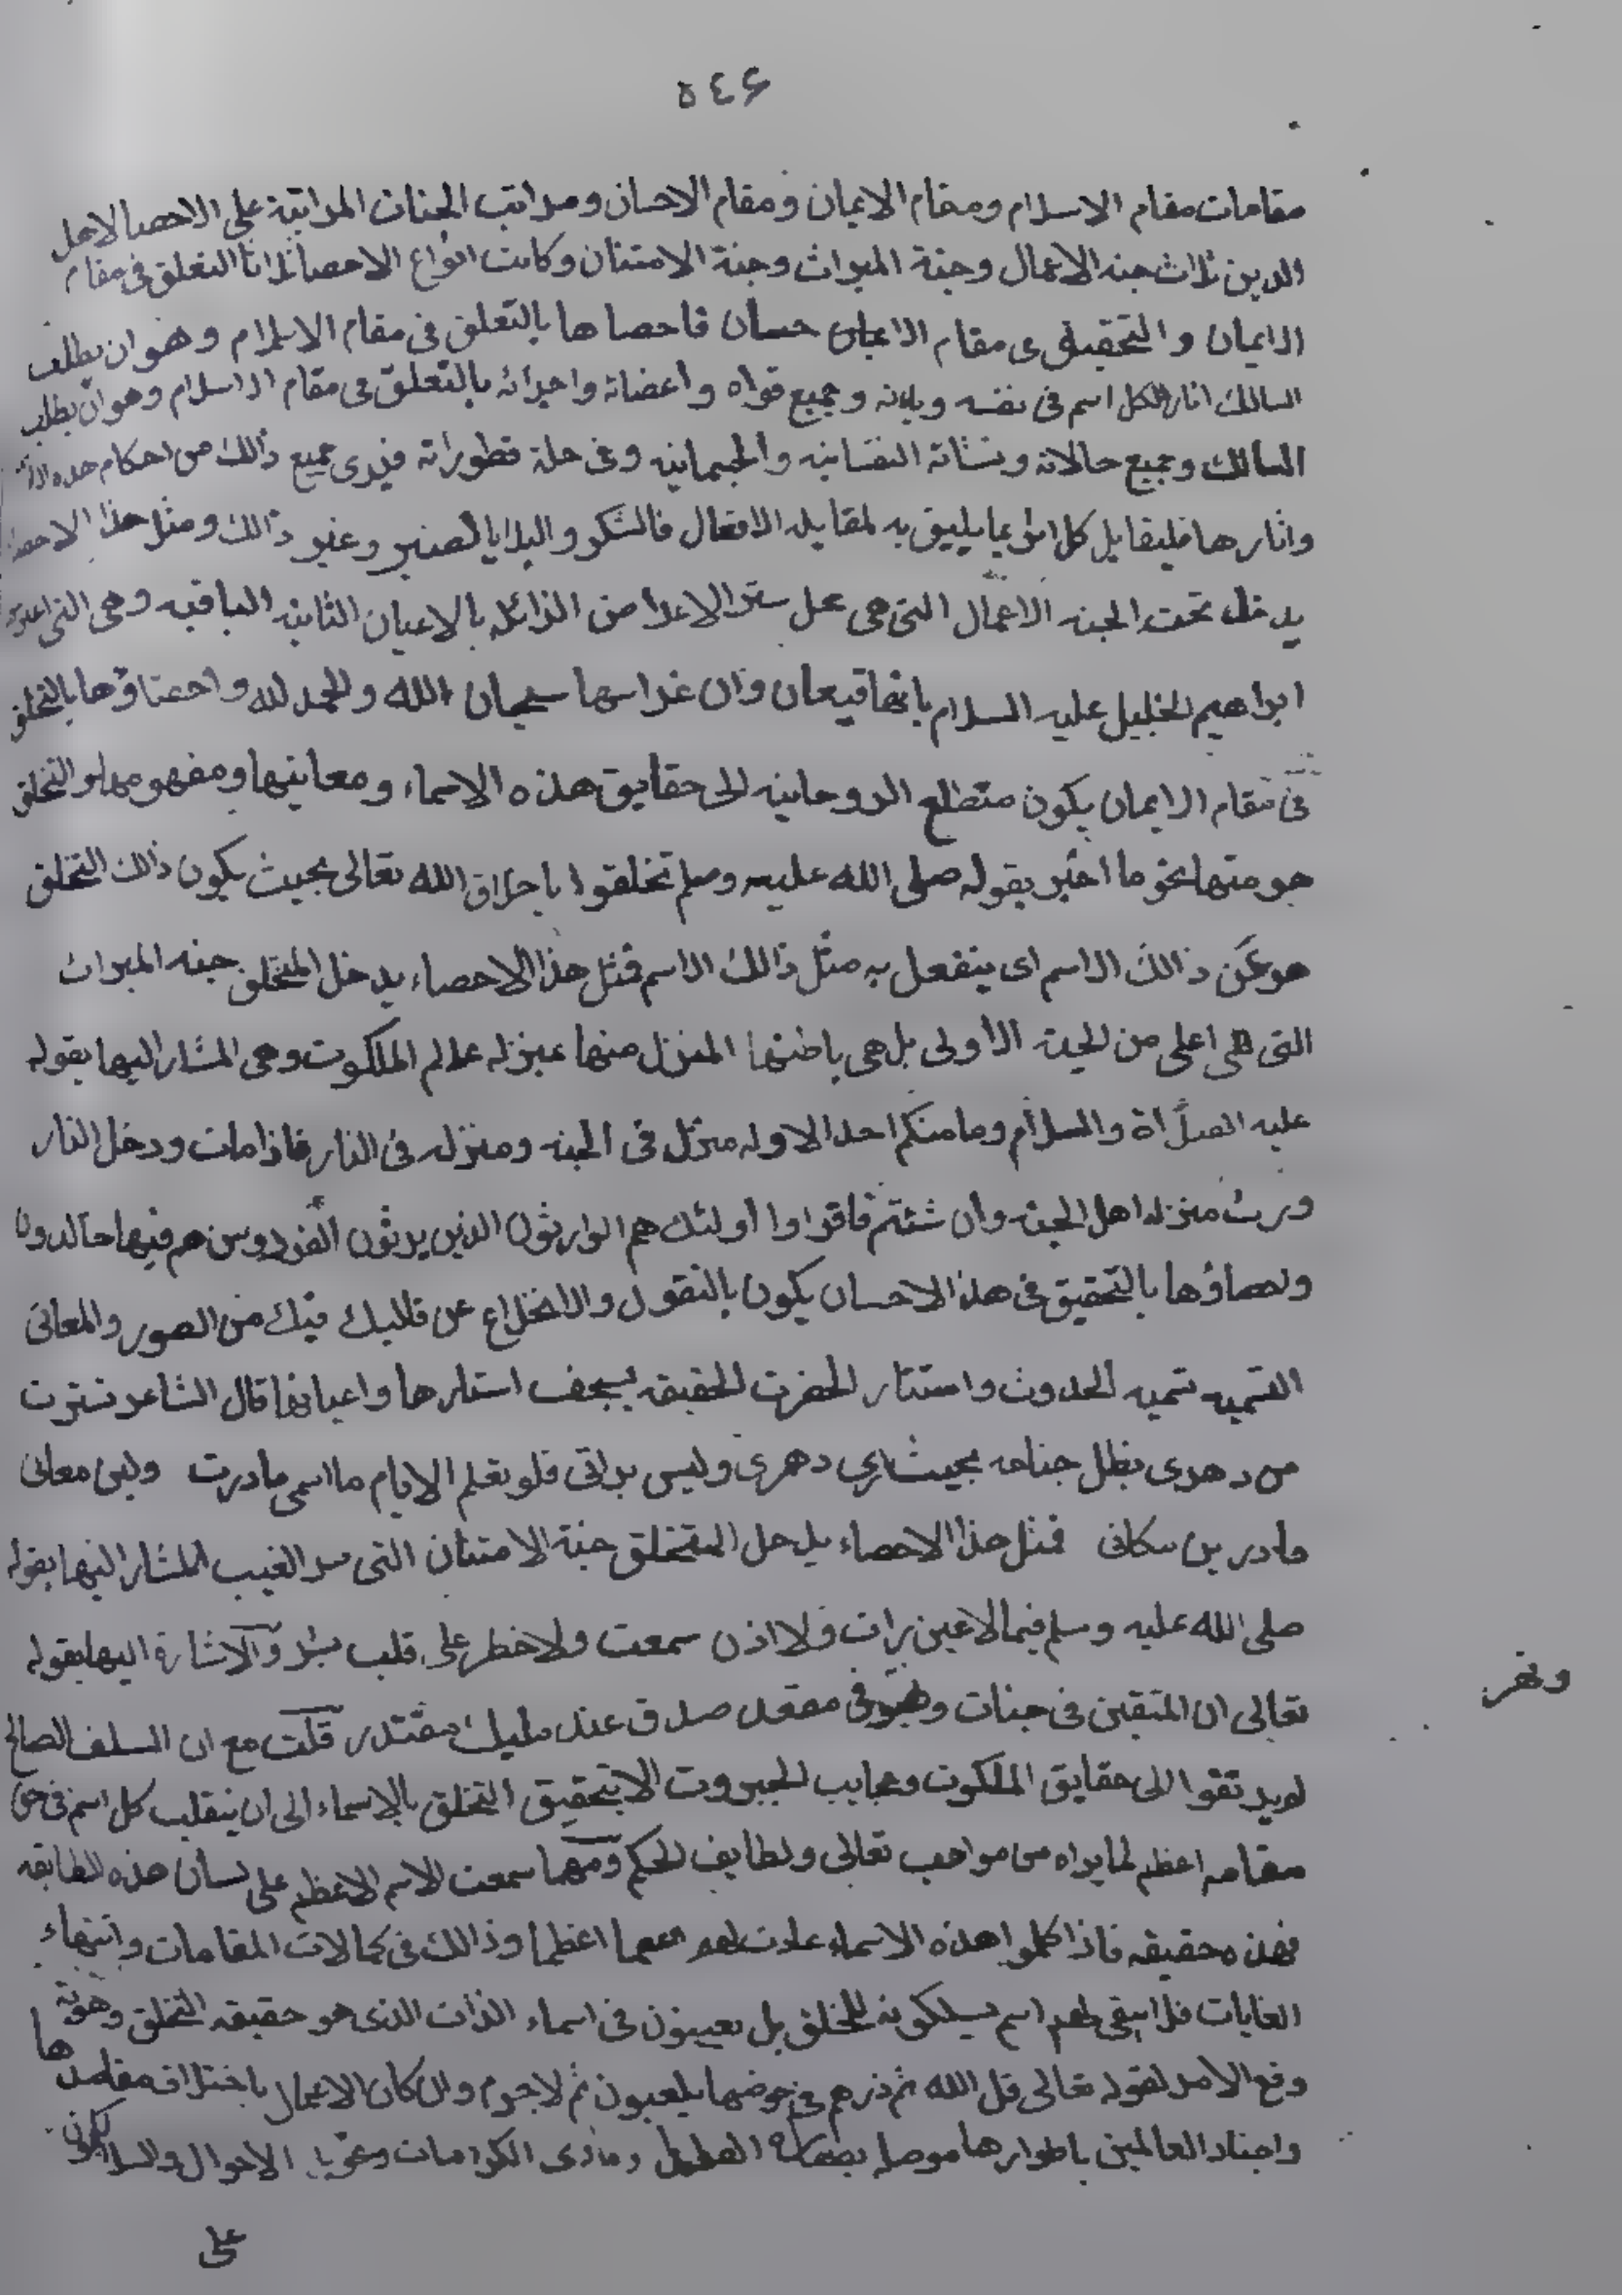 ٥٤٤
مقامات مقام الاسلام ومقام الايمان ومقام الاحسان ومراتب الجنان المراتبة على الاحصا لاهل
الدين ثلاث جنه الاعمال وجنة الميراث وجنة الامتنان وكانت انواع الاحصا ثلاثا التعلق فى مقام
الايمان والتحقيق فى مقام حسان فاحصاها بالتعلق فى مقام الاسلام وهو ان يطلب
السالك اثار لكل اسم فى نفسه وبدنه وجميع قواه واعضائه واجزائه بالتعلق فى مقام الاسلام وهو ان يطلب
السالك وجميع حالاته النفسانيه والجسمانيه وفى جملة تطوراته فيرى جميع ذالك من احكام هذه
واثارها فليقابل كل بما يليق به لمقابله الافعال فالشكر والبلايا لصبر وغير ذالك ومثل هذا الاحصا
يدخل تحت الجنه الاعمال التى هى محل ستر الاعراض الزائله بالاعيان الثابته الباقيه وهى التى
ابراهيم الخليل عليه السلام بانها قيعان وان غراسها سبحان الله والحمد لله بالتخلق
فى مقام الايمان يكون متطلع الروحانيه الى حقايق هذه الاسماء ومعانيها ومفهومها والتخلق
هو منها نحو ما اخبر بقوله صلى الله عليه وسلم تخلقوا باخلاق الله تعالى بحيث يكون ذالك التخلق
هو عَن ذالك الاسم اى ينفعل به مثل ذالك الاسم فمثل هذا الاحصاء يدخل المتخلق جنه الميراث
التى هى اعلى من الجنه الأولى بل هى باطنها المنزل منها بمنزله عالم الملكوت وهى المشار اليها بقوله
عليه الصلاة والسلام وما منكم احد الا وله منزل فى الجنه ومنزله فى النار فاذا مات ودخل النار
ورث منزله اهل الجنه وان شئتم فاقراوا أولئك هم الوارثون الذين يرثون الفردوس هم فيها خالدون
واحصاؤها بالتحقيق فى هذا الاحسان يكون بالتقول والانخلاع عن من الصور والمعانى
الحدوث واستتار الحضرت الحقيقه بسجف استارها واعيانها قال الشاعر تسترت
من دهرى بظل جناحه بحيث ارى دهرى وليس يرانى فلو تعلم الايام ما اسمى مادرت واين معانى
مادرين مكانى فمثل هذا الاحصاء يدخل المتخلق جنة الامتنان التى سر الغيب المشار اليها بقوله
صلى الله عليه وسلم فيما لا عين رات ولا اذن سمعت ولا خطر على قلب بشر والاشارة اليها بقوله
تعالى ان المتقين فى جنات فى مقعد صدق عند مليك مقتدر قلت مع ان السلف الصالح
ونهر
لم يرتقوا الى حقايق الملكوت وعجايب الجبروت الا بتحقيق التخلق بالاسماء الى ان ينقلب كل اسم فى حق
مقامه اعظم لما يراه من مواهب تعالى ولطايف الحكم ومهما سمعت الاسم الاعظم على لسان هذه الطايفه
فهذه حقيقه فاذا كملوا هذه الاسماء عادت لهم اعظما وذالك فى كمالات المقامات وانتهاء
الغايات فلا يبقى لهم اسم يسلكونه للخلق بل يعينون فى اسماء الذات الذى هو حقيقه التخلق
وقع الامر لقوله تعالى قل الله ثم ذرهم فى خوضها يلعبون ثم لاجرم وان كان الاعمال باختلاف مقاصدها
واجناد العالمين باطوارها موصله الكرامات الاحوال
على